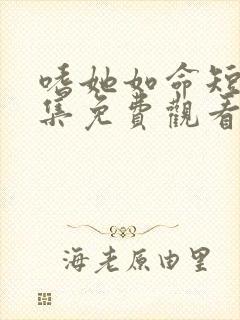 嗜她如命短
集免費觀看
海老原由里